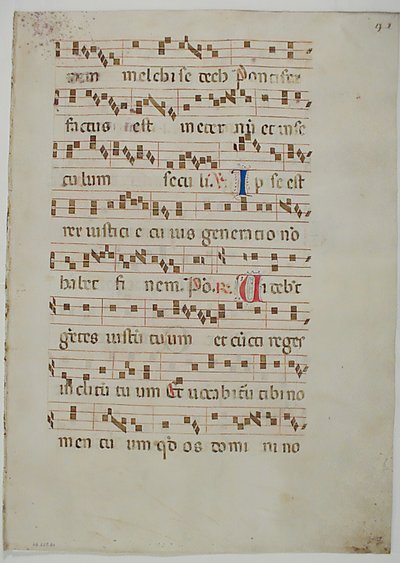 num melchisedech Pontifex
factus est in eternū et in se
culum seculi. V. Ipse est
rex iusticie cuius generatio nō
habet finem. Po. R. Uidebūt
gētes iustū tuum et cūcti reges
inclitū tuum Et uocabitū tibi no
men tuum qd os domini no